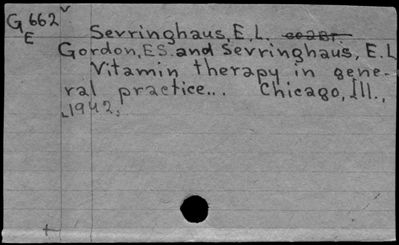 G662
E
Sevringhaus, E.L.
Gordon, E.S. and Sevringhaus, E.L
Vitamin therapy in gene-
ral practice... Chicago, Ill.,
1942.